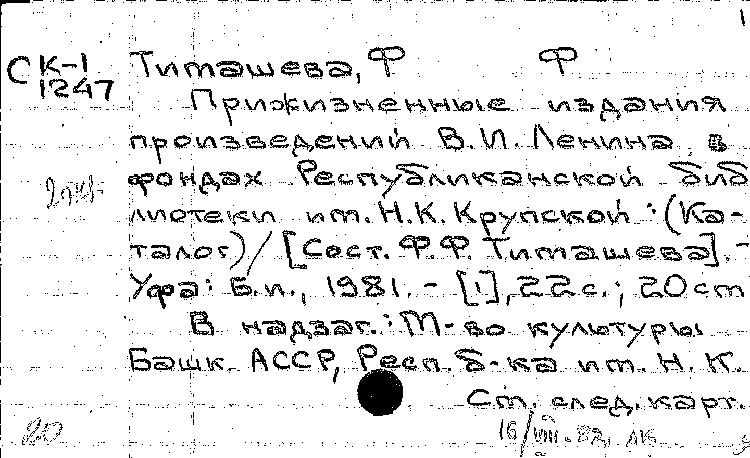 1
СК-1 Тимашева, Ф Ф
1247
Прижизненные издания
произведений В.И. Ленина в
фондах Республиканской биб
лиотеки им. Н.К. Крупской : (Ка-
талог) / [Сост. Ф.Ф. Тимашева]. -
Уфа: Б.и., 1981. - [1], 22 с.; 20 см
В надзаг.: М-во культуры
Башк. АССР, Респ. б-ка им. Н. К.
См. след. карт.
20